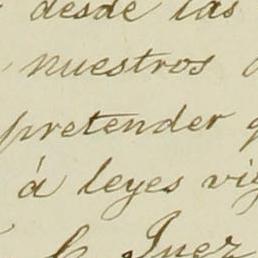 desde las
nuestros
pretender
á leyes
Juez